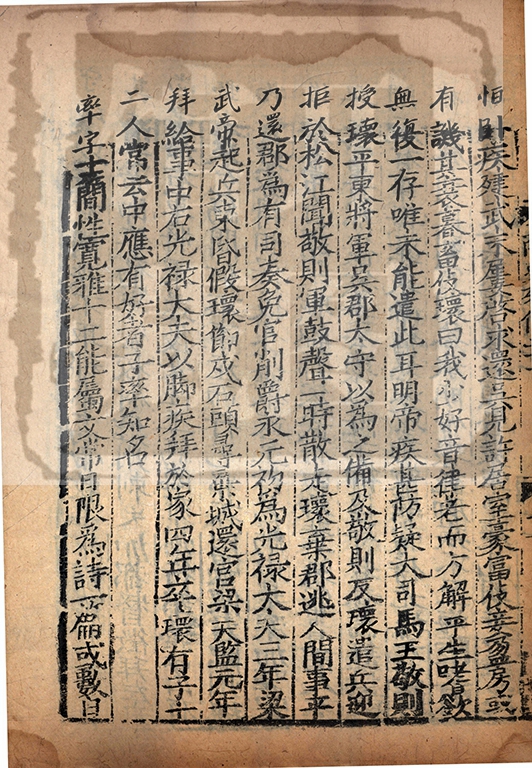 恒卧疾建武末屢啓求還吳見許居室豪富伎妾盈房或
有譏其衰暮畜伎環曰我少好音律老而方解平生嗜欲
無復一存唯未能遣此耳明帝疾甚防疑大司馬王敬則
授環平東將軍吳郡太守以為之備及敬則反環遣兵迎
拒於松江聞敬則軍鼓聲一時散走環棄郡逃人間事平
乃還郡為有司奏免官削爵永元初為光禄太夫三年梁
武帝起兵東昏假環節戍石頭尋棄城還宫梁天監元年
拜給事中右光禄大夫以脚疾拜於家四年卒環有子十
二人常云中應有好者子率知名
率字士簡性寛雅十二能屬文常日限為詩一篇或數日